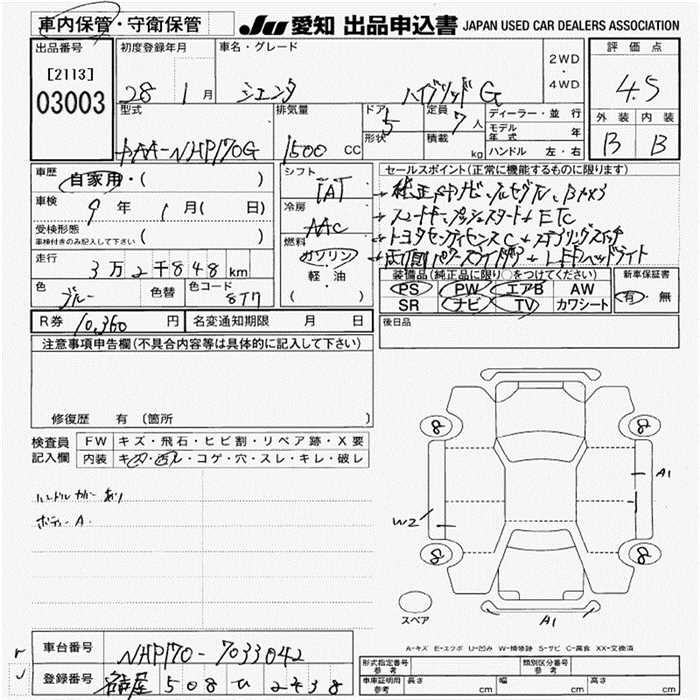 車内保管・守衛保管
JU 愛知 出品申込書 JAPAN USED CAR DEALERS ASSOCIATION
出品番号 初度登録年月 車名・グレード 2WD・4WD 評価点
[2113]
03003
28 1月 シエンタ ハイブリッド G 4.5
型式 排気量 ドア 5 定員 7人 ディーラー・並行 外装 内装
形状 積載 kg モデル年式 年
DAA-NHP170G 1500 CC ハンドル 左・右 B B
車歴 自家用・( )
シフト IAT
セールスポイント(正常に機能するものに限ります)
車検 9年 1月( 日)
冷房 AAC
受検形態
車検付きのみ記入して下さい ( )
燃料 ガソリン・軽・油 ( )
走行 3万2千848km
・スマートキー プッシュスタート+ETC
・トヨタセンティセンスC+ステアリングスイッチ
・両側パワースライドドア+LEDヘッドライト
色 ブルー 色替 色コード 8T7
装備品(純正品に限り○をつけてください) 新車保証書
PS PW エアB AW 有・無
SR ナビ TV カワシート
R券 10,360 円 名変通知期限 月 日
後日品
注意事項申告欄(不具合内容等は具体的に記入して下さい)
修復歴 有 (箇所 )
検査員記入欄 FW キズ・飛石・ヒビ割・リペア跡・X要
内装 キズ・汚レ・コゲ・穴・スレ・キレ・破レ
ハンドルカバーあり
ボディーA.
8 8
A1
W2
8 8
スペア
A1
A-キズ E-エクボ U-凹み W-補修跡 S-サビ C-腐食 XX-交換済
車台番号 NHP170-7033042
登録番号 名古屋 508 ひ 2438
形式指定番号 参考 類別区分番号 参考
車庫証明用 参考 長さ cm 幅 cm 高さ cm